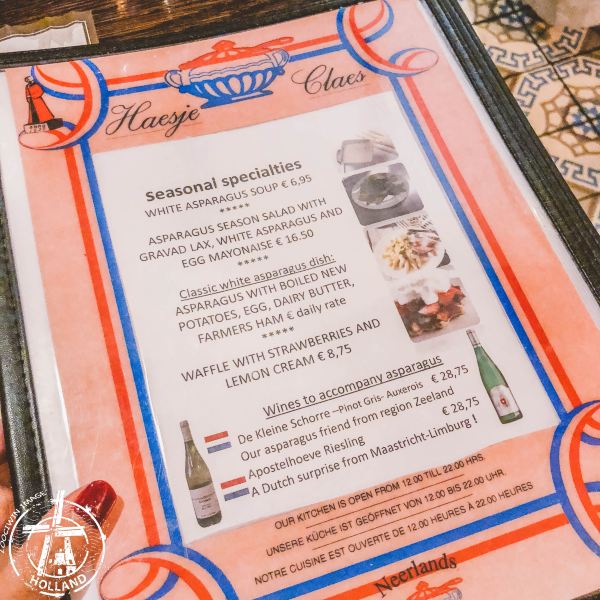 Haesje Claes
Seasonal specialties
WHITE ASPARAGUS SOUP € 6,95
*****
ASPARAGUS SEASON SALAD WITH
GRAVAD LAX, WHITE ASPARAGUS AND
EGG MAYONAISE € 16.50
*****
Classic white asparagus dish:
ASPARAGUS WITH BOILED NEW
POTATOES, EGG, DAIRY BUTTER,
FARMERS HAM € daily rate
*****
WAFFLE WITH STRAWBERRIES AND
LEMON CREAM € 8,75
Wines to accompany asparagus
De Kleine Schorre –Pinot Gris- Auxerois € 28,75
Our asparagus friend from region Zeeland
Apostelhoeve Riesling € 28,75
A Dutch surprise from Maastricht-Limburg !
OUR KITCHEN IS OPEN FROM 12.00 TILL 22.00 HRS.
UNSERE KÜCHE IST GEÖFFNET VON 12.00 BIS 22.00 UHR.
NOTRE CUISINE EST OUVERTE DE 12.00 HEURES À 22.00 HEURES
Neerlands
HOLLAND